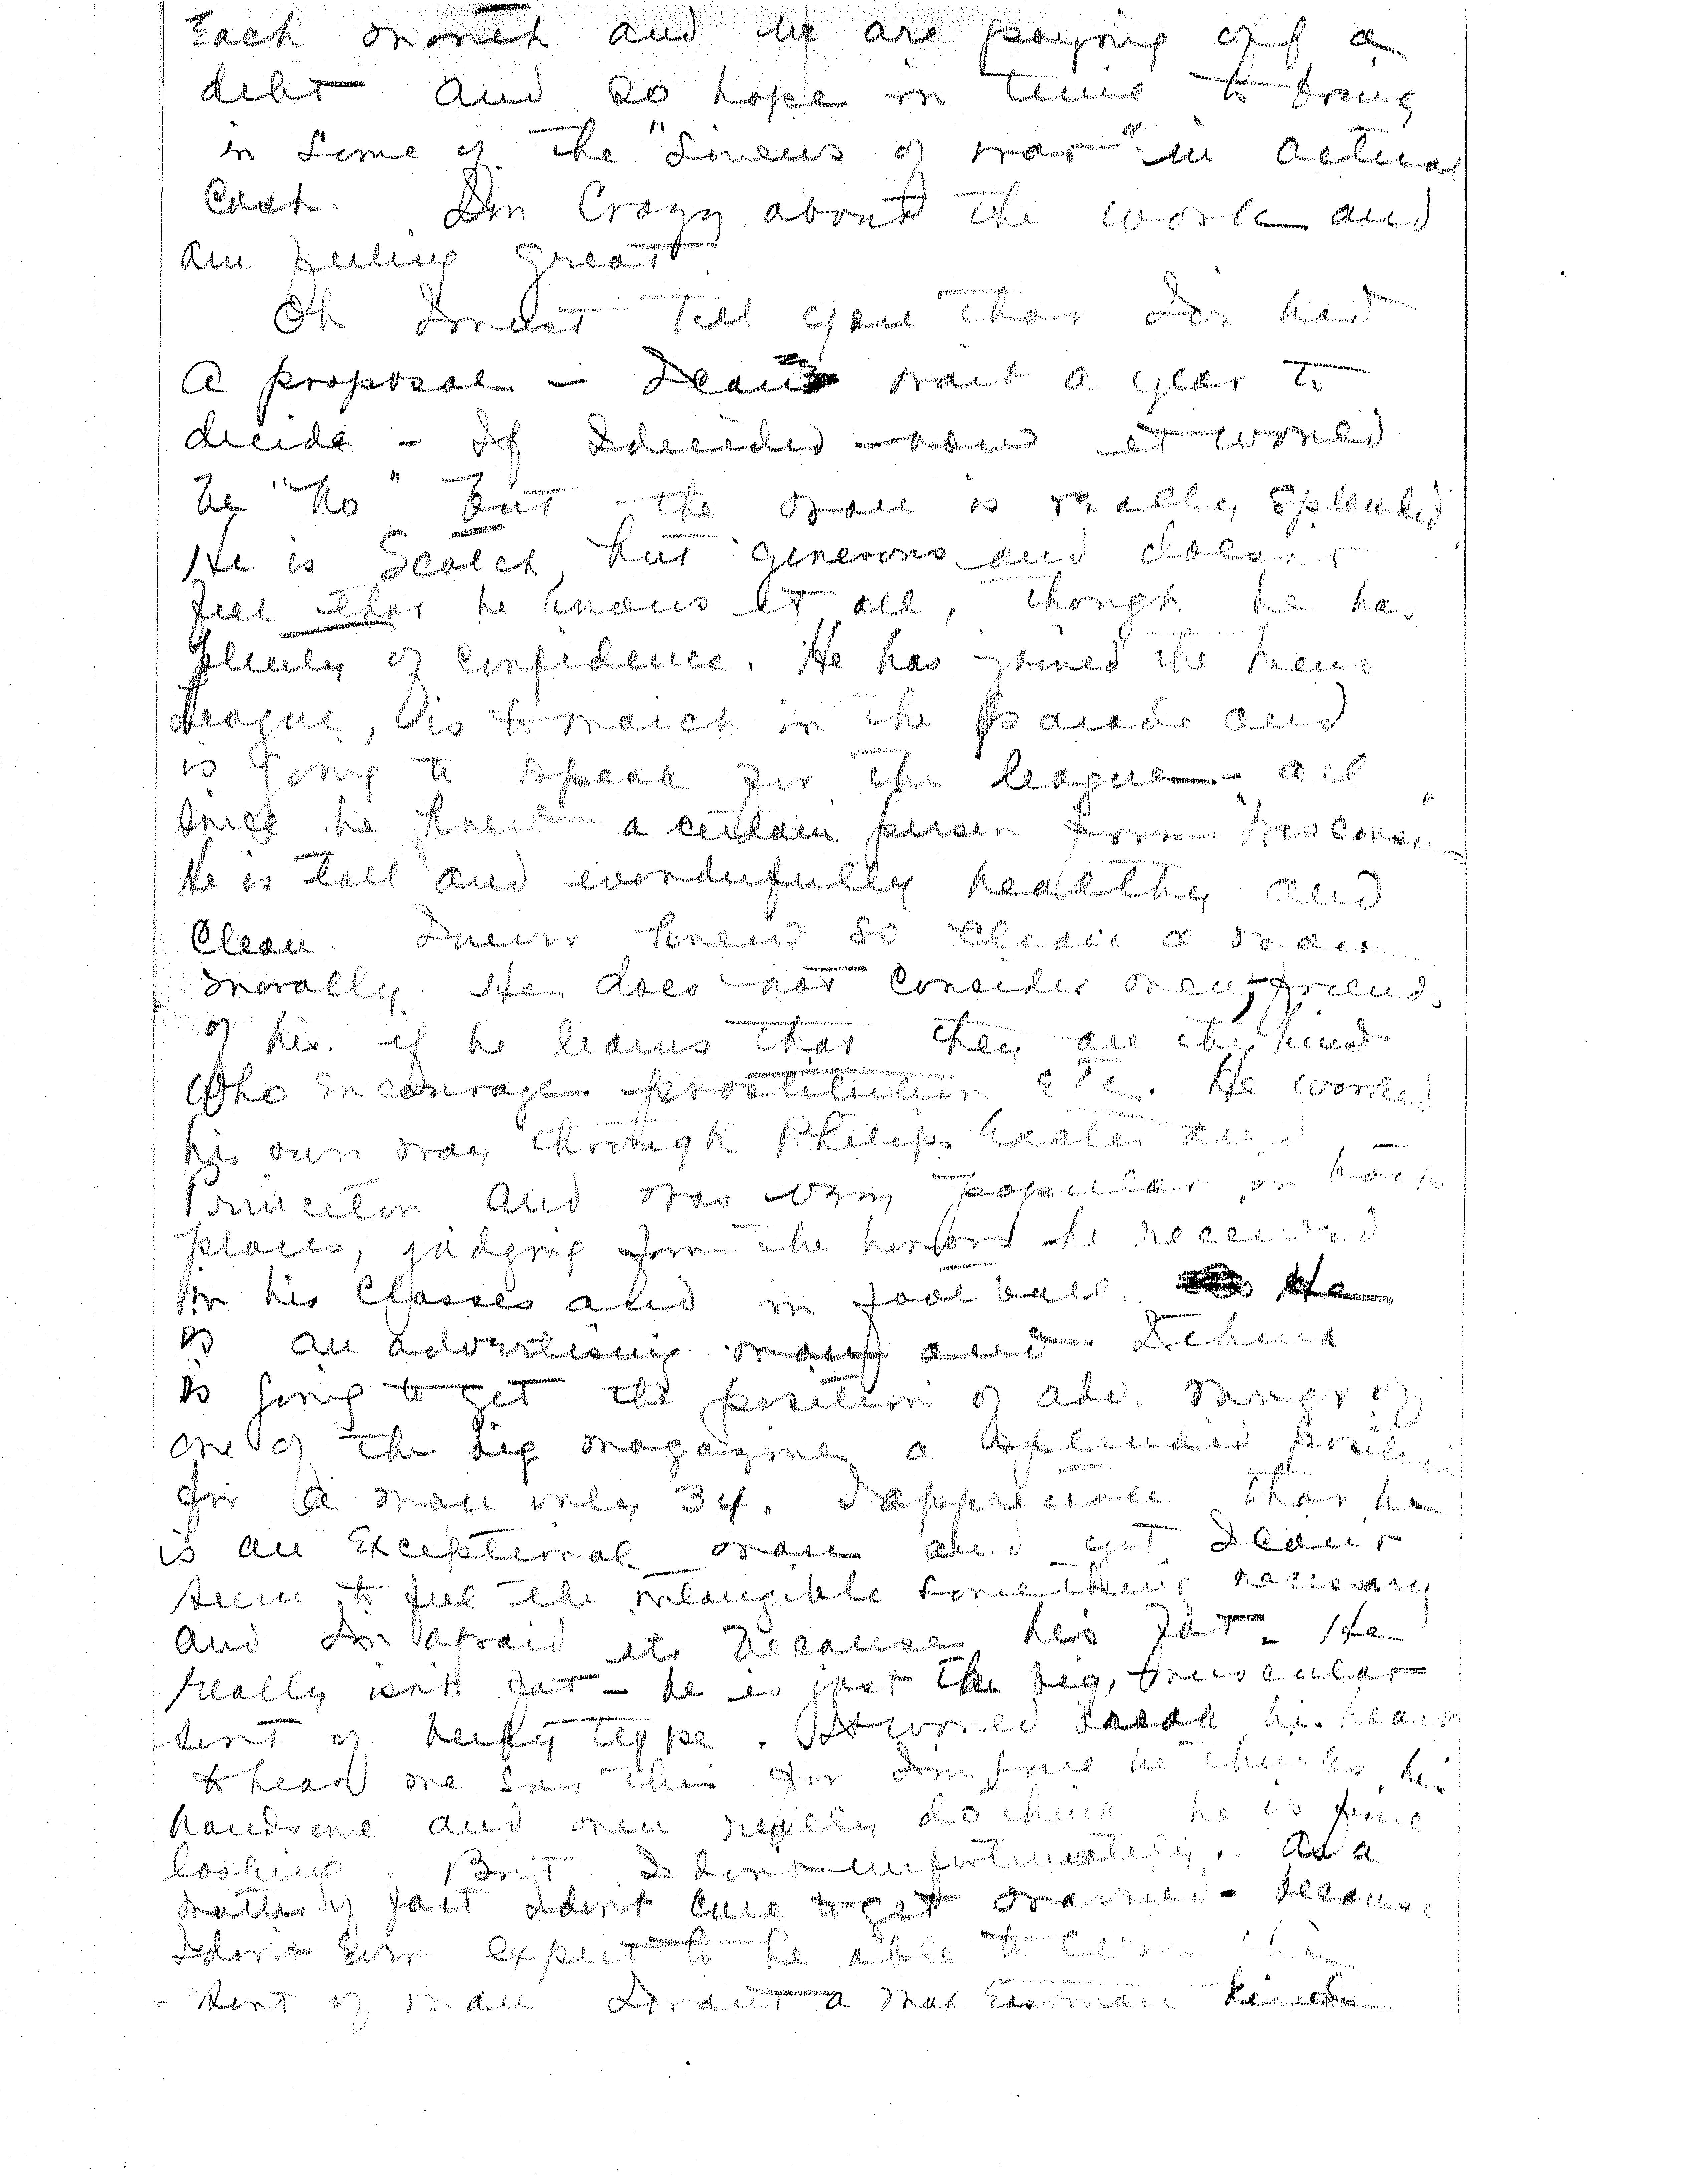 Each month and we are paying off a
debt and so hope in time to bring
in some of the "sinews of war" in actual
cash. I'm crazy about the work and
am feeling great.
Oh I must tell you that I've had
a proposal - I can wait a year to
decide - If I decided now it would
be "no" but the man is really splendid
He is Scotch, but generous and doesn't
feel that he knows it all, though he has
plenty of confidence. He has joined the Mens
League, is to march in the parade and
is going to speak for the league - all
since he knew "a certain person from Wisconsin"
He is tall and wonderfully healthy and
clean. I never knew so clean a man
morally. He does not consider men, friends
of his if he learns that they are the kind
who encourage prostitution etc. He worked
his own way through Philips Exeter and
Princeton and was very popular in both
places, judging from the honors he received
in his classes and in foot ball. He
is an advertising man and I think
is going to get the position of adv. mangr of
one of the big magazines a splendid
for a man only 34. I appreciate that he
is an exceptional man and yet I can't
seem to feel the intangible something necessary
and I'm afraid its because he's fat. He
really isn't fat - he is just the big, muscular
sort of hefty type. It would break his heart
to hear me say this for I'm sure he thinks he's
handsome and men really do think he is fine
looking. But I don't unfortunately. As a
matter of fact I don't care to get married - because
I don't ever expect to be able to the
sort of man I want a Max Eastman kind